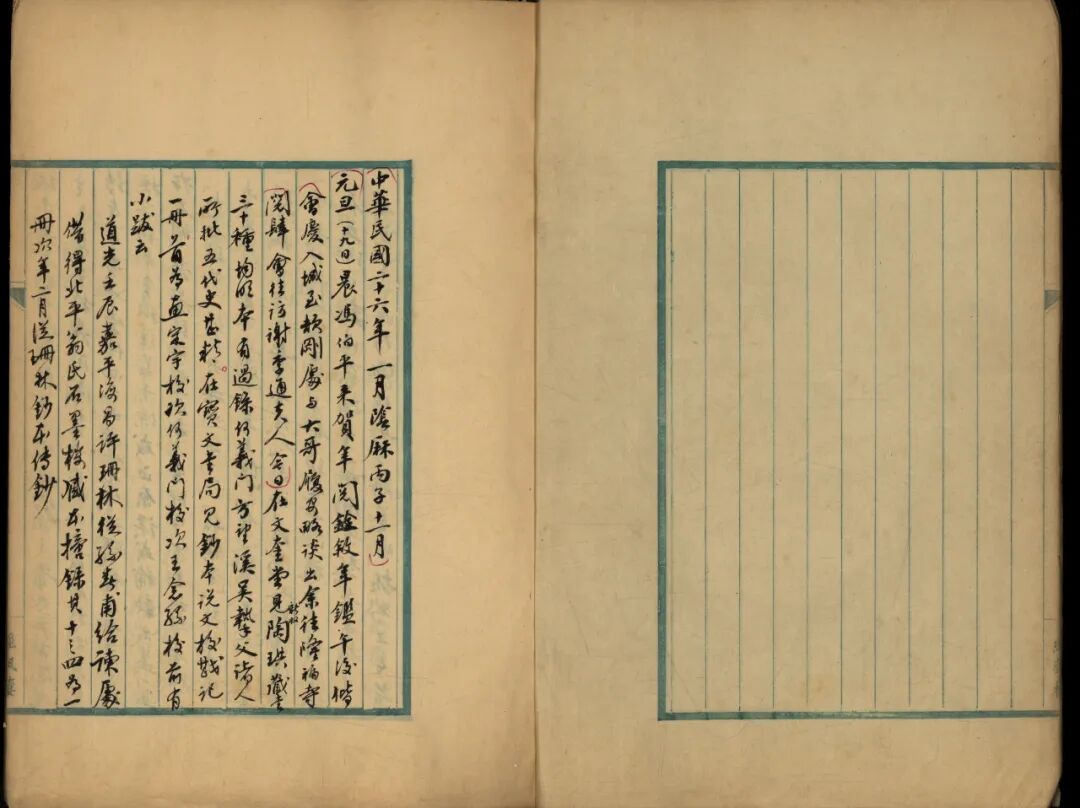 中華民國二十六年一月陰厤丙子十一月
元旦(十九日)晨馮伯平来賀年閱銓敘年鑑午後偕
會慶入城至頡剛處与大哥履安略谈出余往隆福寺
閱肆會往访谢季通夫人今日在文奎堂見陶珙藏書
三十種均明本有過錄何義门方望溪吴摯父諸人
所批五代史甚精在寶文書局見鈔本说文校戡记
一冊首為惠定宇校次何義門校次王念孫校前有
小跋云
道光壬辰嘉平海昌许珊林從孫春甫给諫處
借得北平翁氏石墨楼藏本摘錄其十三四為一
冊次年二月從珊林鈔本傳鈔